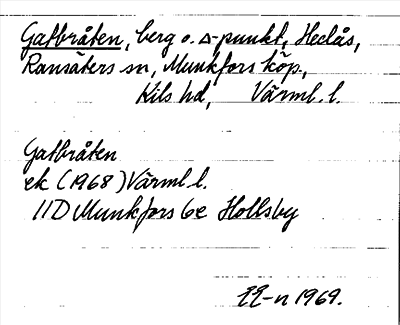 Gatbråten, berg o. △-punkt, Hedås,
Ransäters sn, Munkfors köp.,
Kils hd, Värml. l.
Gatbråten
ek (1968) Värml l.
11D Munkfors 6e Hollsby
EE-n 1969.